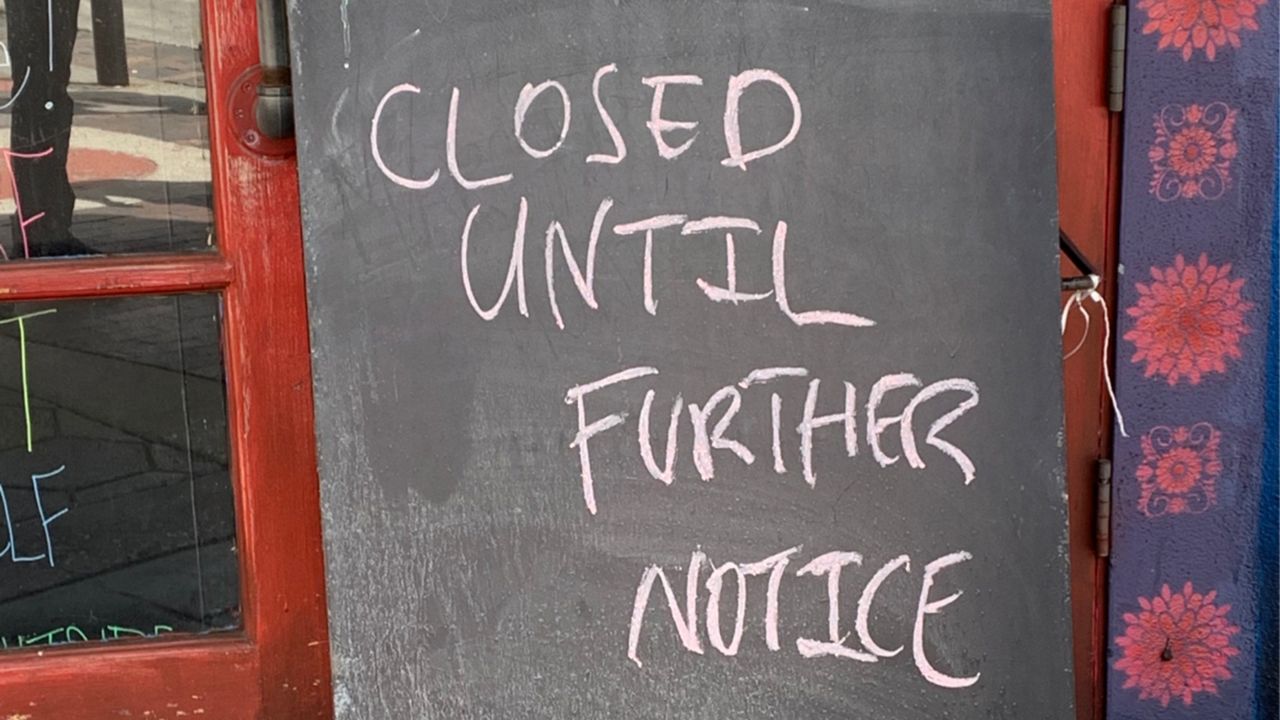 CLOSED
UNTIL
FURTHER
NOTICE